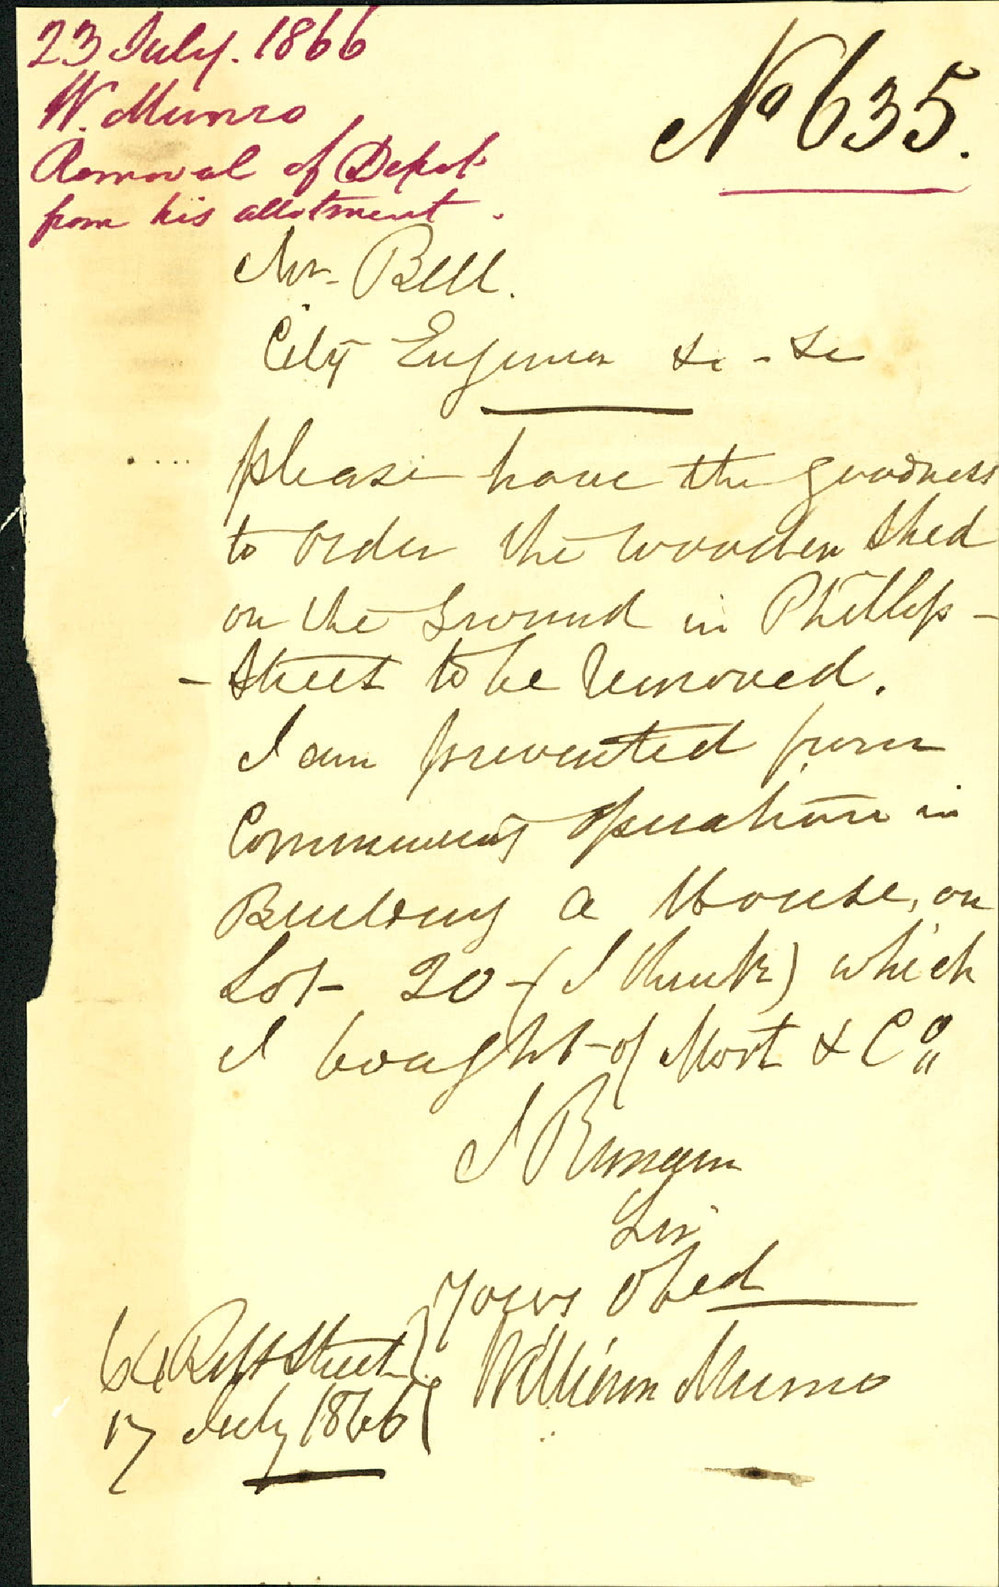 23 July. 1866
W. Munro
Removal of Depot
from his allotment.
No 635.
Mr. Bell.
City Engineer &c - &c
please have the goodness
to order the wooden shed
on the Ground in Phillip -
- Street to be removed.
I am prevented from
Commencing operations in
Building a House, on
Lot 20 - (I think) which
I bought of Mort & Co
I Remain
Sir
Yours Obed
William Munro
Street
17 July 1866